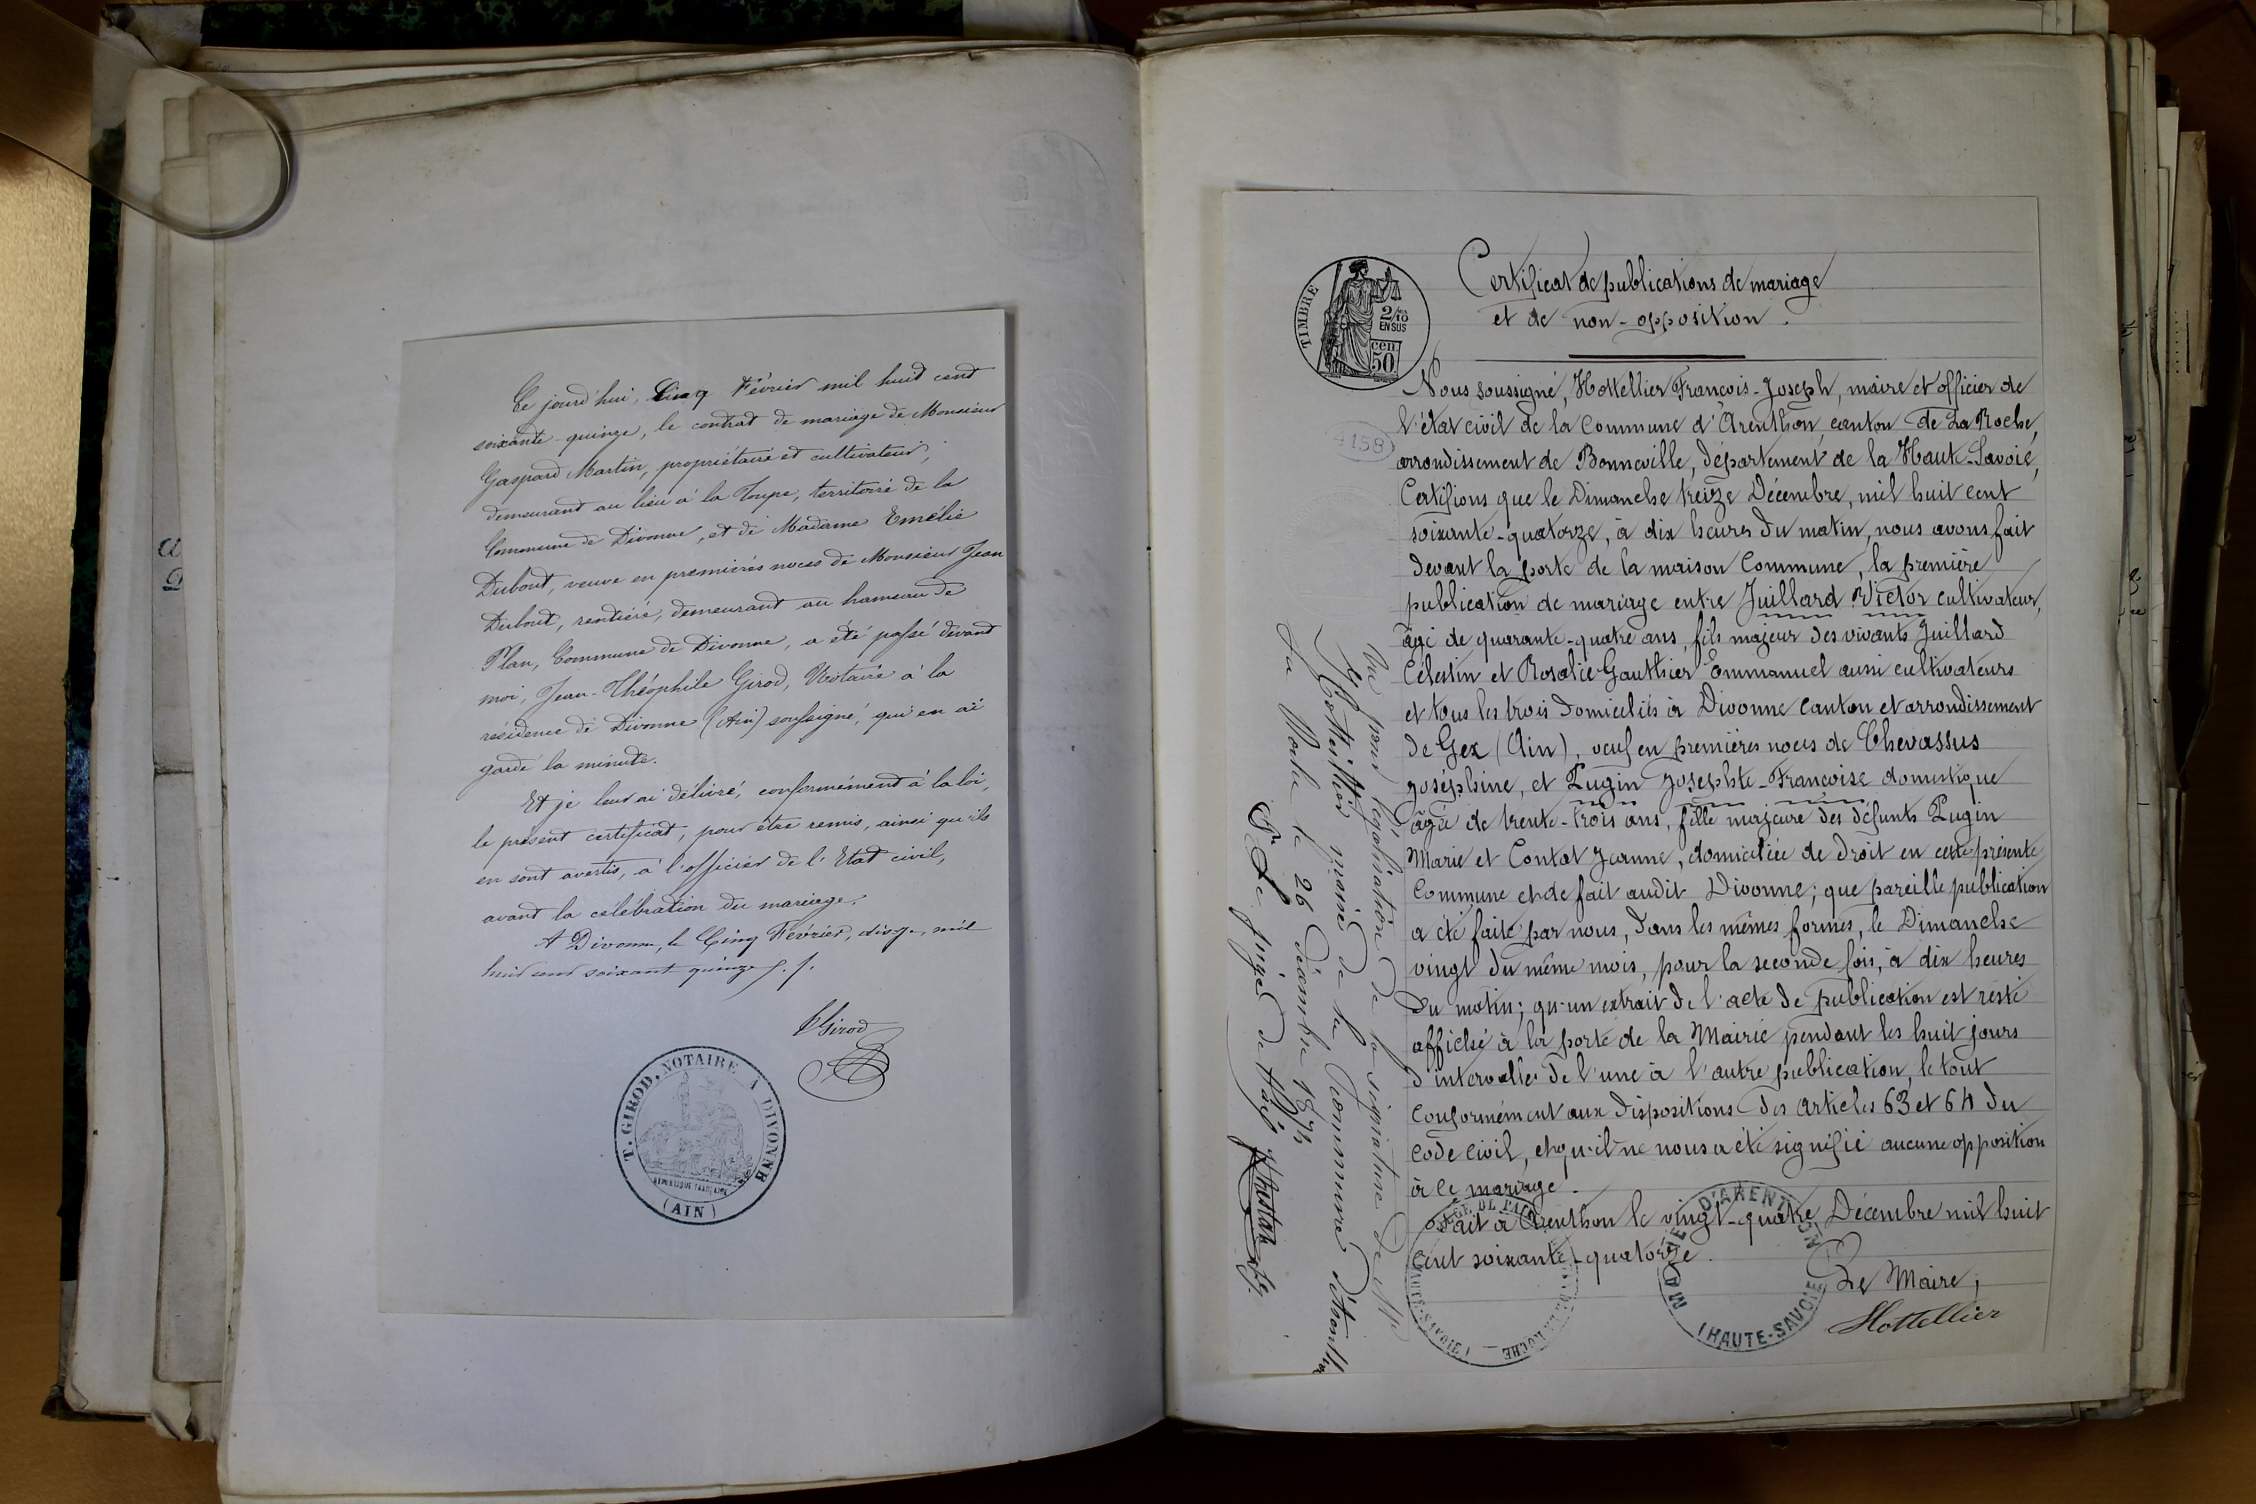 Ce jourd'hui, Cinq Février mil huit cent
soixante-quinze, le contrat de mariage de Monsieur
Gaspard Martin, propriétaire et cultivateur,
demeurant au lieu à la Toupe, territoire de la
Commune de Divonne, et de Madame Emélie
Dubout, veuve en premières noces de Monsieur Jean
Dubout, rentière, demeurant au hameau de
Plan, Commune de Divonne, a été passé devant
moi, Jean-Théophile Girod, Notaire à la
résidence de Divonne (Ain) soussigné, qui en ai
gardé la minute.
Et je leur ai délivré, conformément à la loi,
le présent certificat, pour être remis, ainsi qu'ils
en sont avertis, à l'officier de l'Etat civil,
avant la célébration du mariage.
A Divonne, le Cinq Février, mil
huit cent soixant quinze
Girod
T. GIROD, NOTAIRE A DIVONNE
RÉPUBLIQUE FRANÇAISE
(AIN)
TIMBRE
2/10
EN SUS
cen.
50
Certificat de publications de mariage
et de non-opposition.
Nous soussigné, Hottellier François-Joseph, maire et officier de
l'état civil de la Commune d'Arenthon, canton de La Roche,
158
arrondissement de Bonneville, département de la Haute-Savoie,
Certifions que le Dimanche treize Décembre, mil huit cent
soixante-quatorze, à dix heures du matin, nous avons fait
devant la porte de la maison Commune, la première
publication de mariage entre Juillard Victor cultivateur,
âgé de quarante-quatre ans, fils majeur des vivants Juillard
Célestin et Rosalie Gauthier Emmanuel aussi cultivateurs
et tous les trois domiciliés à Divonne canton et arrondissement
de Gex (Ain), veuf en premières noces de Chevassus
Joséphine, et Pugin Josephte-Françoise domestique
âgée de trente-trois ans, fille majeure des défunts Pugin
Marie et Contat Jeanne, domiciliée de droit en cette présente
Commune et de fait audit Divonne; que pareille publication
a été faite par nous, dans les mêmes formes, le Dimanche
vingt du même mois, pour la seconde fois, à dix heures
du matin; qu'un extrait de l'acte de publication est resté
affiché à la porte de la Mairie pendant les huit jours
d'intervalle de l'une à l'autre publication, le tout
conformément aux dispositions des articles 63 et 64 du
code civil, et qu'il ne nous a été signifié aucune opposition
à ce mariage.
Fait à Arenthon le vingt-quatre Décembre mil huit
cent soixante-quatorze.
Le Maire,
Hottellier
MAIRIE D'ARENTHON
(HAUTE-SAVOIE)
DE LA ROCHE
(HAUTE-SAVOIE)
Vu pour légalisation de la signature de Mr
Hottellier maire de la Commune d'Arenthon
La Roche le 26 décembre 1874
Le juge de Paix